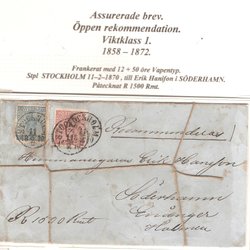 Assurerade brev.
Öppen rekommendation.
Viktklass 1.
1858 – 1872.
Frankerat med 12 + 50 öre Vapentyp.
Stpl STOCKHOLM 11-2-1870 , till Erik Hanifon i SÖDERHAMN.
Påtecknat R 1500 Rmt.
STOCKHOLM
Rekommenderas
Hemmansegaren Erik Hansson
Söderhamn
R 1500 Rmt